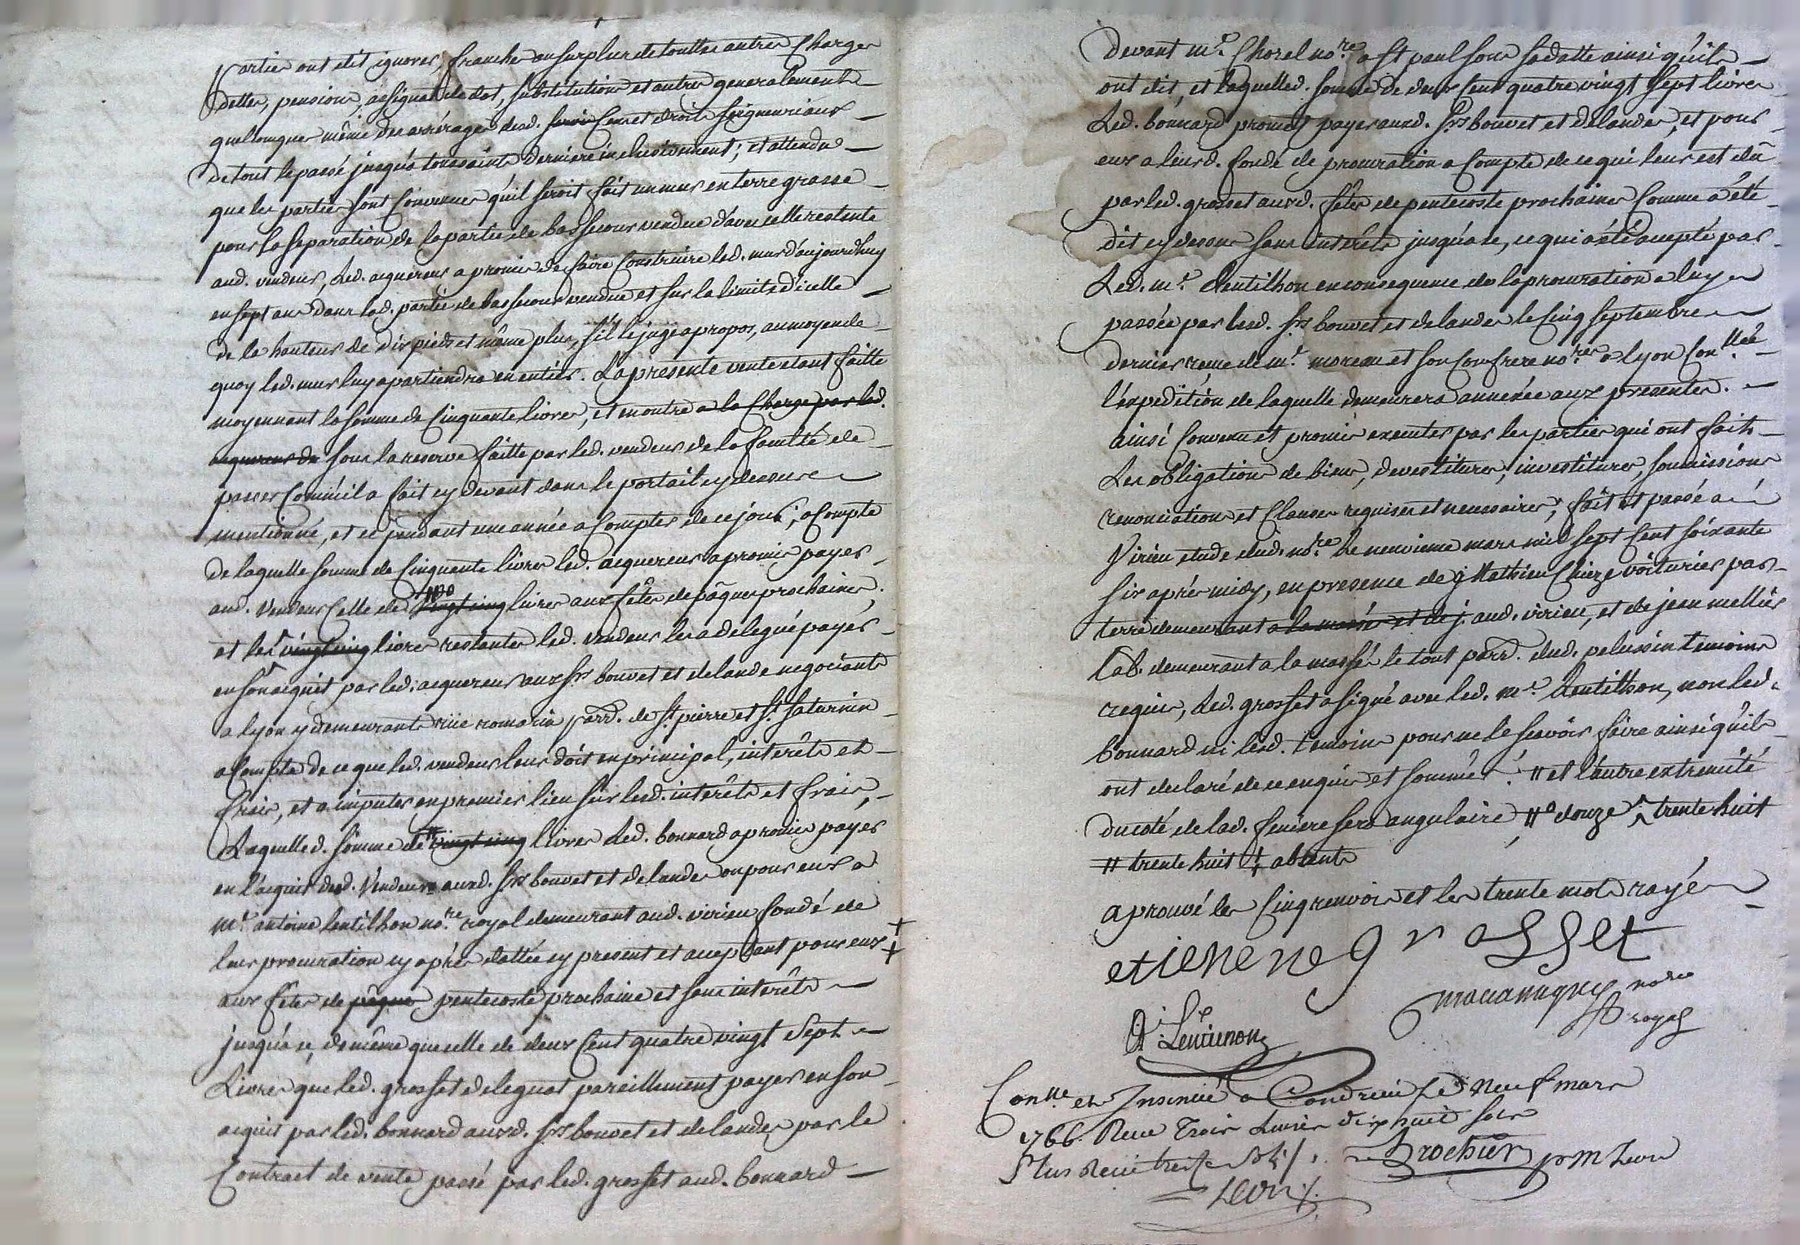 parties ont dit ignorer, franche au surplus de touttes autres Charges
dettes, pensions, assignat de dot, substitutions et autres generalement
quelconques même des arrérages desd. servis Cens et droits seigneuriaux
de tout le passé jusqu'a toussaints derniere inclusivement; et attendu
que les parties sont Convenues qu'il seroit fait un mur en terre grasse
pour la separation de la partie de basse cour vendue d'avec celle restante
aud. vendeur, Led. acquereur a promis de faire Construire led. mur d'aujourdhuy
en sept ans dans lad. partie de basse cour vendue et sur la limitte d'icelle
de la hauteur de dix pieds et même plus, s'il le juge a propos, au moyen de
quoy led. mur luy apartiendra en entier. La presente vente etant faitte
moyennant la somme de Cinquante livres, et en outre a la Charge par led.
acquereur de sous la reserve faitte par led. vendeur de la faculté de
passer Comm'il a fait cy devant dans le portail cy dessus
mentionné, et ce pendant une année a Compter de ce jour; a Compte
de laquelle somme de Cinquante livres led. acquereur a promis payer
aud. Vendeur Celle de vingt cinq livres aux fêtes de pâques prochaines,
et les vingt cinq livres restantes led. vendeur les a delegué payer
en son acquit par led. acquereur aux Srs bouvet et delande negociants
a lyon y demeurants rüe romarin parr. de St. pierre et St. saturnin
a Compte de ce que led. vendeur leur doit en principal, interêts et
frais, et a imputer en premier lieu sur lesd. interêts et frais,
Laquelle d. somme de vingt cinq livres Led. bonnard a promis payer
en l'acquit dud. Vendeur auxd. Srs bouvet et delandes ou pour eux a
Mr. antoine lentilhon nore. royal demeurant aud. virieu fondé de
leur procuration cy après dattée cy present et acceptant pour eux ‡
aux fêtes de pâque pentecoste prochaine et sans interêts
jusqu'a ce, de même que celle de deux Cent quatre vingt sept
Livres que led. grosset deleguat pareillement payer en son
acquit par led. bonnard auxd. Srs bouvet et delandes par le
Contract de vente passé par led. grosset aud. bonnard
devant me. Chorel nore. a St paul sous sa datte ainsi qu'ils
ont dit, et laquelle d. somme de deux Cent quatre vingt sept livres
Led. bonnard promet payer auxd. Srs bouvet et delandes, et pour
eux a leurd. fondé de procuration a Compte de ce qui leur est dû
par led. grosset auxd. fêtes de pentecoste prochaines Comme a été
dit cy dessus sans interêts jusqu'a ce, ce qui a été accepté par
Led. mr. Lentilhon en consequence de la procuration a luy
passée par lesd. Srs bouvet et delandes le Cinq septembre
dernier recue de mr. moreau et son Confrere nores a lyon Conllée
l'expedition de laquelle demeurera annexée aux presentes.
ainsi Convenu et promis executer par les parties qui ont fait
Les obligations de biens, devestitures, investitures, soumissions
renonciations et Clauses requises et necessaires; fait et passé a
Virieu etude dud. nore. Le neuvieme mars mil sept Cent soixante
six après midy, en presence de Mathieu Chieze voiturier par
terre demeurant a la maché et de j. aud. virieu, et de jean mellier
lab. demeurant a la maché le tout parr. dud. pelussin temoins
requis, Led. grosset a signé avec led. mr. Lentilhon, non led.
bonnard ni lesd. temoins pour ne le sçavoir faire ainsi qu'ils
ont declaré de ce enquis et sommés. # et l'autre extremité
du coté de lad. feniere sera angulaire, # douze, ^ trente huit
# trente huit ‡ absents
aprouvé les Cinq renvois et les trente mots rayés
etienne grosset
nore
royal
A Lentilhon
Conlle et Insinüé a Condrieu Le Neuf mars
1766. Recu Trois Livres dixhuit sols
Plus Recu treize sols
Brochier